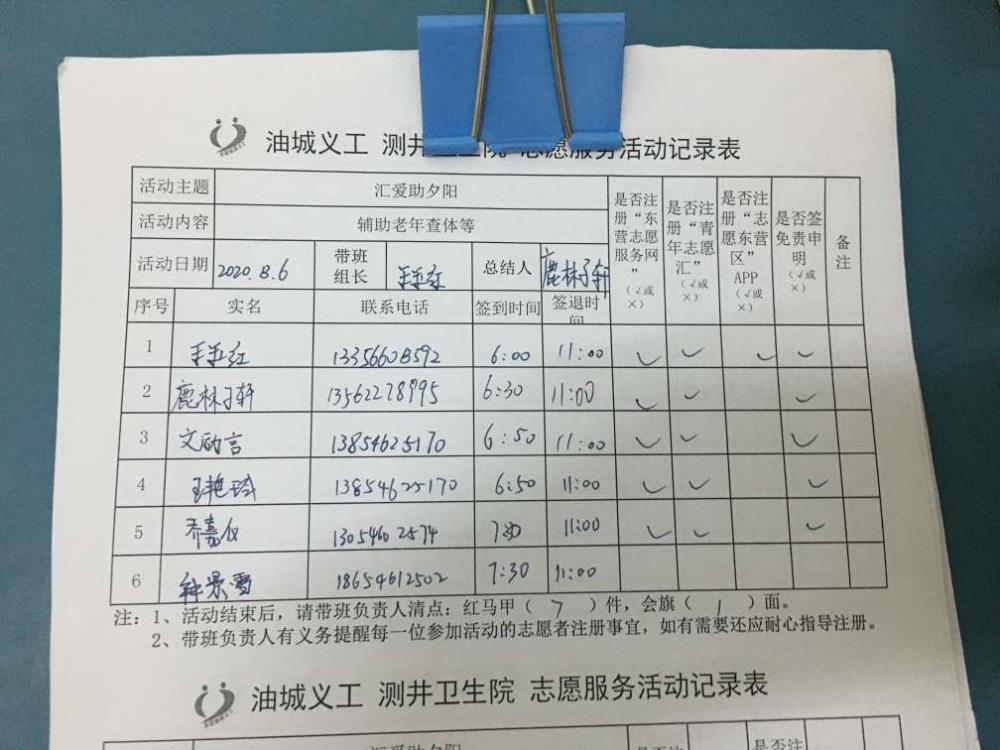 油城义工 测井卫生院 志愿服务活动记录表
活动主题 汇爱助夕阳 是否注册“东营志愿服务网”（√或×） 是否注册“青年志愿汇”（√或×） 是否注册“志愿东营区”APP（√或×） 是否签免责申明（√或×） 备注
活动内容 辅助老年查体等
活动日期 2020.8.6 带班组长 王亚红 总结人 鹿林子轩
序号 实名 联系电话 签到时间 签退时间
1 王亚红 13356608592 6:00 11:00 √ √ √ √
2 鹿林子轩 13562278995 6:30 11:00 √ √ √
3 文励言 13854625170 6:50 11:00 √ √ √
4 王艳琦 13854625170 6:50 11:00 √ √ √
5 乔嘉仪 13054602574 7:30 11:00 √ √ √
6 18654612502 7:30 11:00
注：1、活动结束后，请带班负责人清点：红马甲（ 7 ）件，会旗（ 1 ）面。
2、带班负责人有义务提醒每一位参加活动的志愿者注册事宜，如有需要还应耐心指导注册。
油城义工 测井卫生院 志愿服务活动记录表
汇爱助夕阳 是否注 是否注